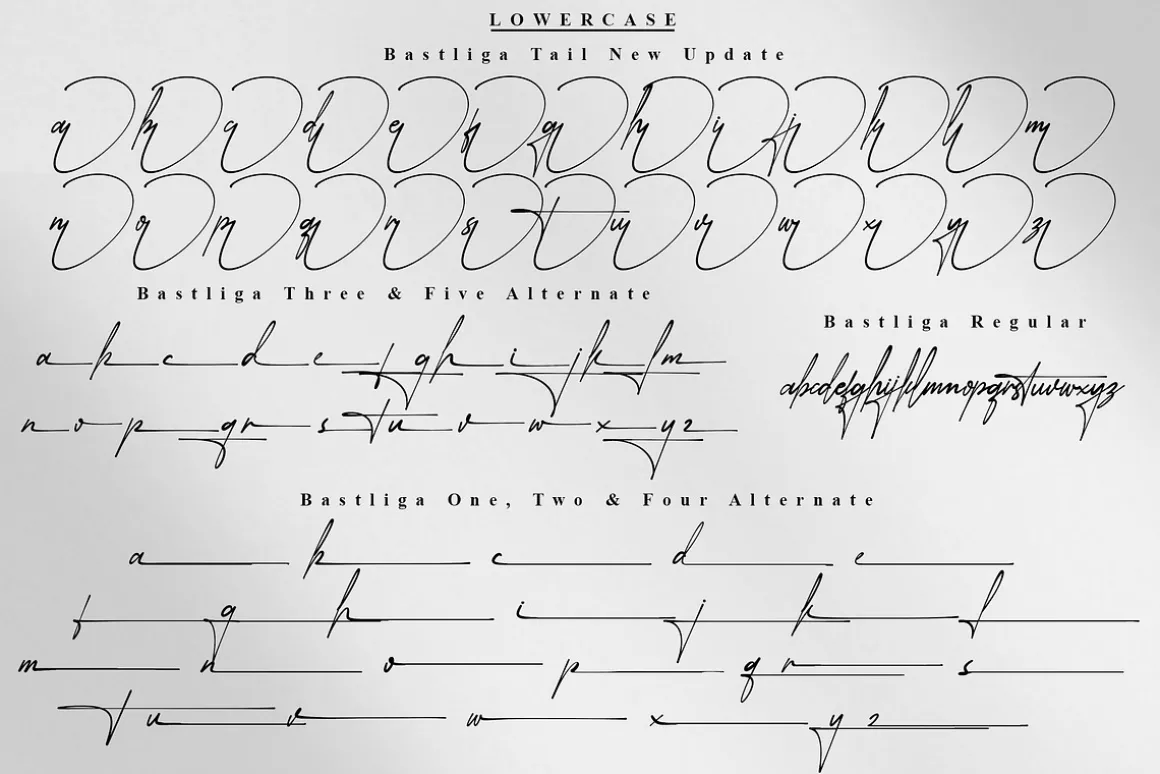 LOWERCASE
Bastliga Tail New Update
a b c d e f g h i j k l m
n o p q r s t u v w x y z
Bastliga Three & Five Alternate
a b c d e f g h i j k l m
n o p q r s t u v w x y z
Bastliga Regular
abcdefghijklmnopqrstuvwxyz
Bastliga One, Two & Four Alternate
a b c d e
f g h i j k l
m n o p q r s
t u v w x y z